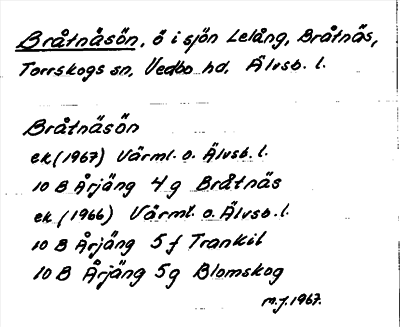 Bråtnäsön, ö i sjön Lelång, Bråtnäs,
Torrskogs sn, Vedbo hd, Älvsb. l.
Bråtnäsön
ek (1967) Värml. o. Älvsb. l.
10 B Årjäng 4 g Bråtnäs
ek (1966) Värml. o. Älvsb. l.
10 B Årjäng 5 f Trankil
10 B Årjäng 5 g Blomskog
M.J. 1967.